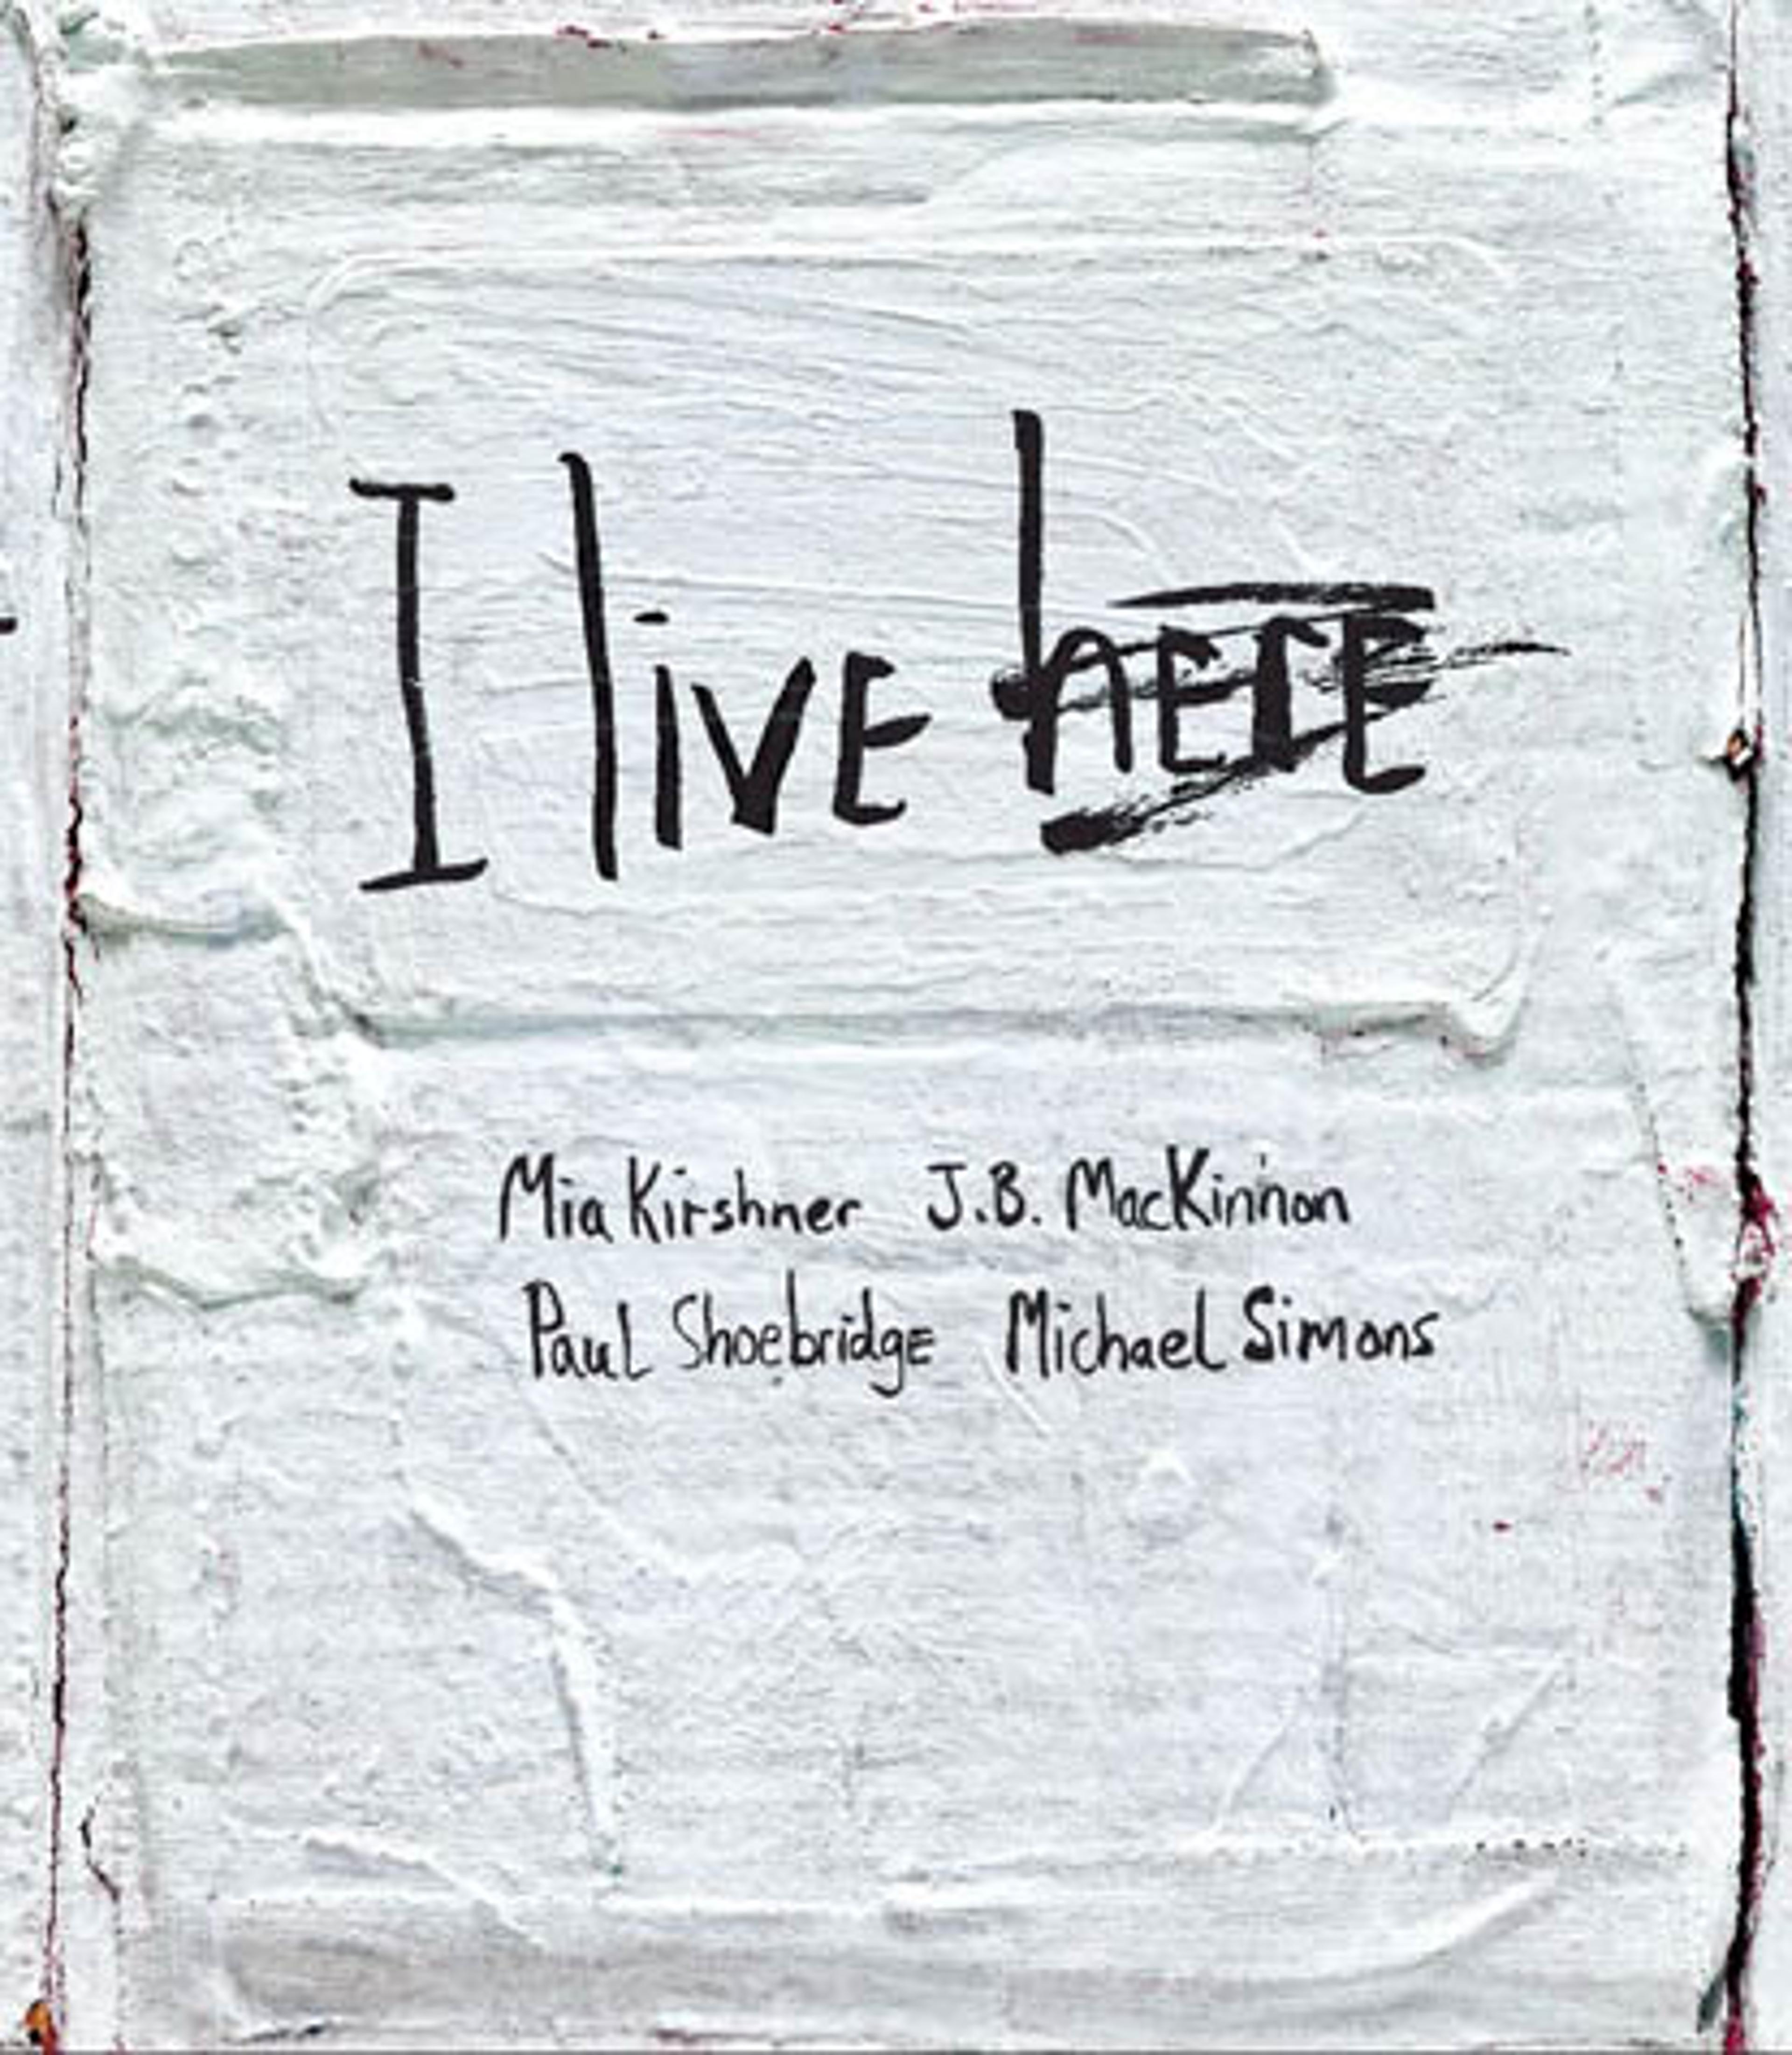 I live here
Mia Kirshner J.B. MacKinnon
Paul Shoebridge Michael Simons